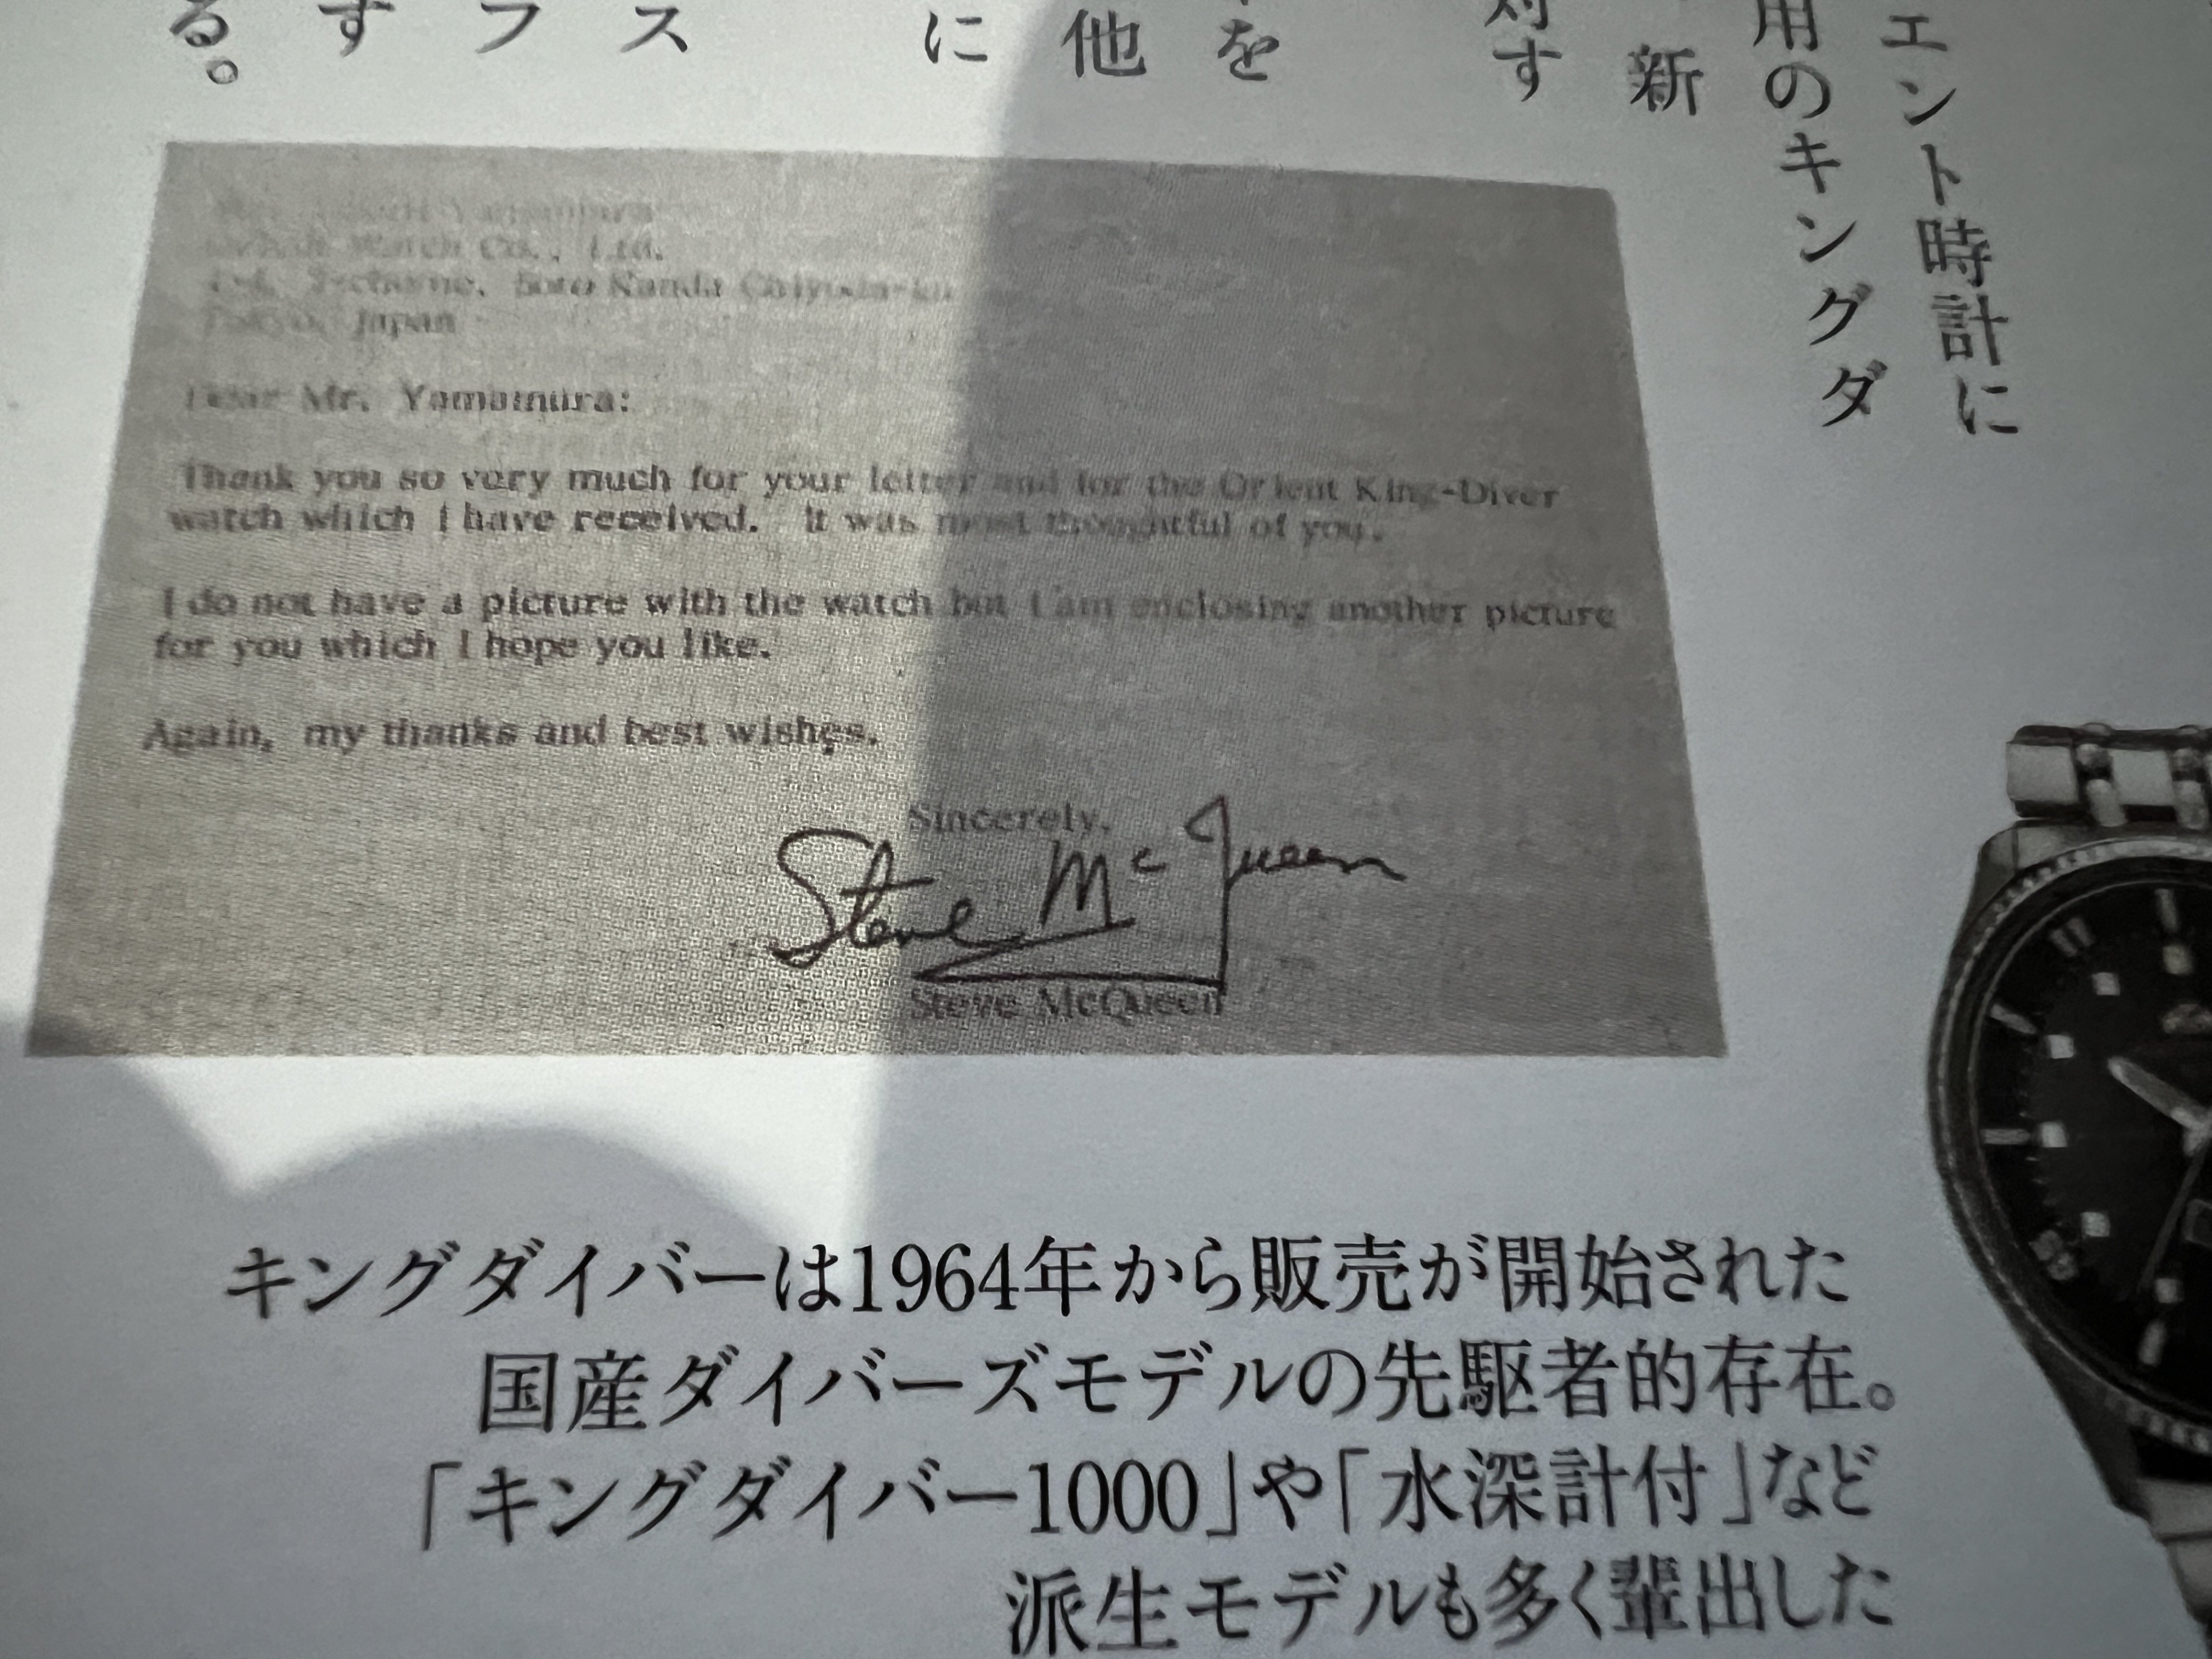 エント時計に
用のキングダ
新
対す
を
他
に
ス
フ
す
る。
Watch Co., Ltd.
Japan
Dear Mr. Yamamura:
Thank you so very much for your letter and for the Orient King-Diver
watch which I have received. It was most thoughtful of you.
I do not have a picture with the watch but I am enclosing another picture
for you which I hope you like.
Again, my thanks and best wishes.
Sincerely,
Steve McQueen
Steve McQueen
キングダイバーは1964年から販売が開始された
国産ダイバーズモデルの先駆者的存在。
「キングダイバー1000」や「水深計付」など
派生モデルも多く輩出した